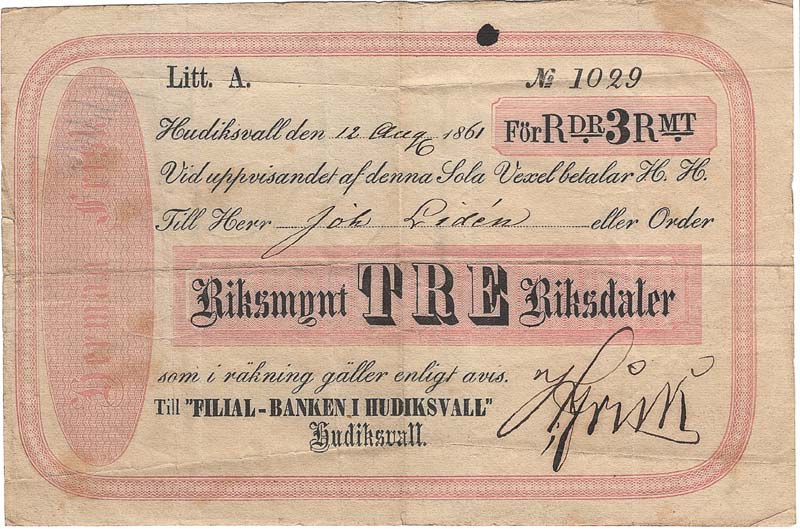 Litt. A.
№ 1029
Hudiksvall den 12 Aug 1861
För RDR. 3 RMT.
Vid uppvisandet af denna Sola Vexel betalar H. H.
Till Herr Joh Lidén eller Order
Riksmynt TRE Riksdaler
som i räkning gäller enligt avis.
Till "FILIAL-BANKEN I HUDIKSVALL"
Hudiksvall.
Herman